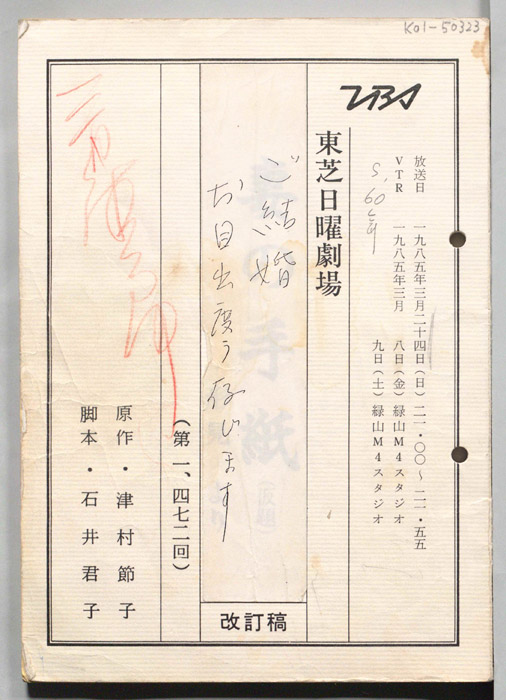 K01-50323
TBS
放送日 一九八五年三月二十四日(日) 二一・〇〇〜二一・五五
VTR 一九八五年三月 八日(金) 緑山M4スタジオ
九日(土) 緑山M4スタジオ
S.60年
東芝日曜劇場
ご結婚
お目出度う存じます
改訂稿
(第一、四七二回)
原作・津村節子
脚本・石井君子